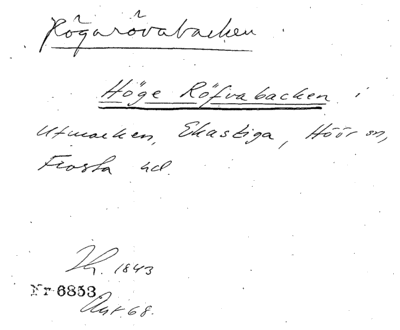 Rögarövabacken
Höge Röfvabacken i
utmarken, Ekastiga, Höör sn,
Frosta hd.
1843
Nr 6853
68.